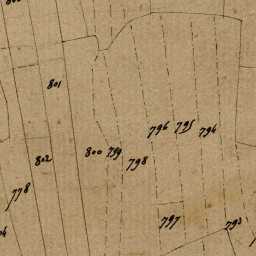 801
796 795 794
800 799 798
802
778
797
793